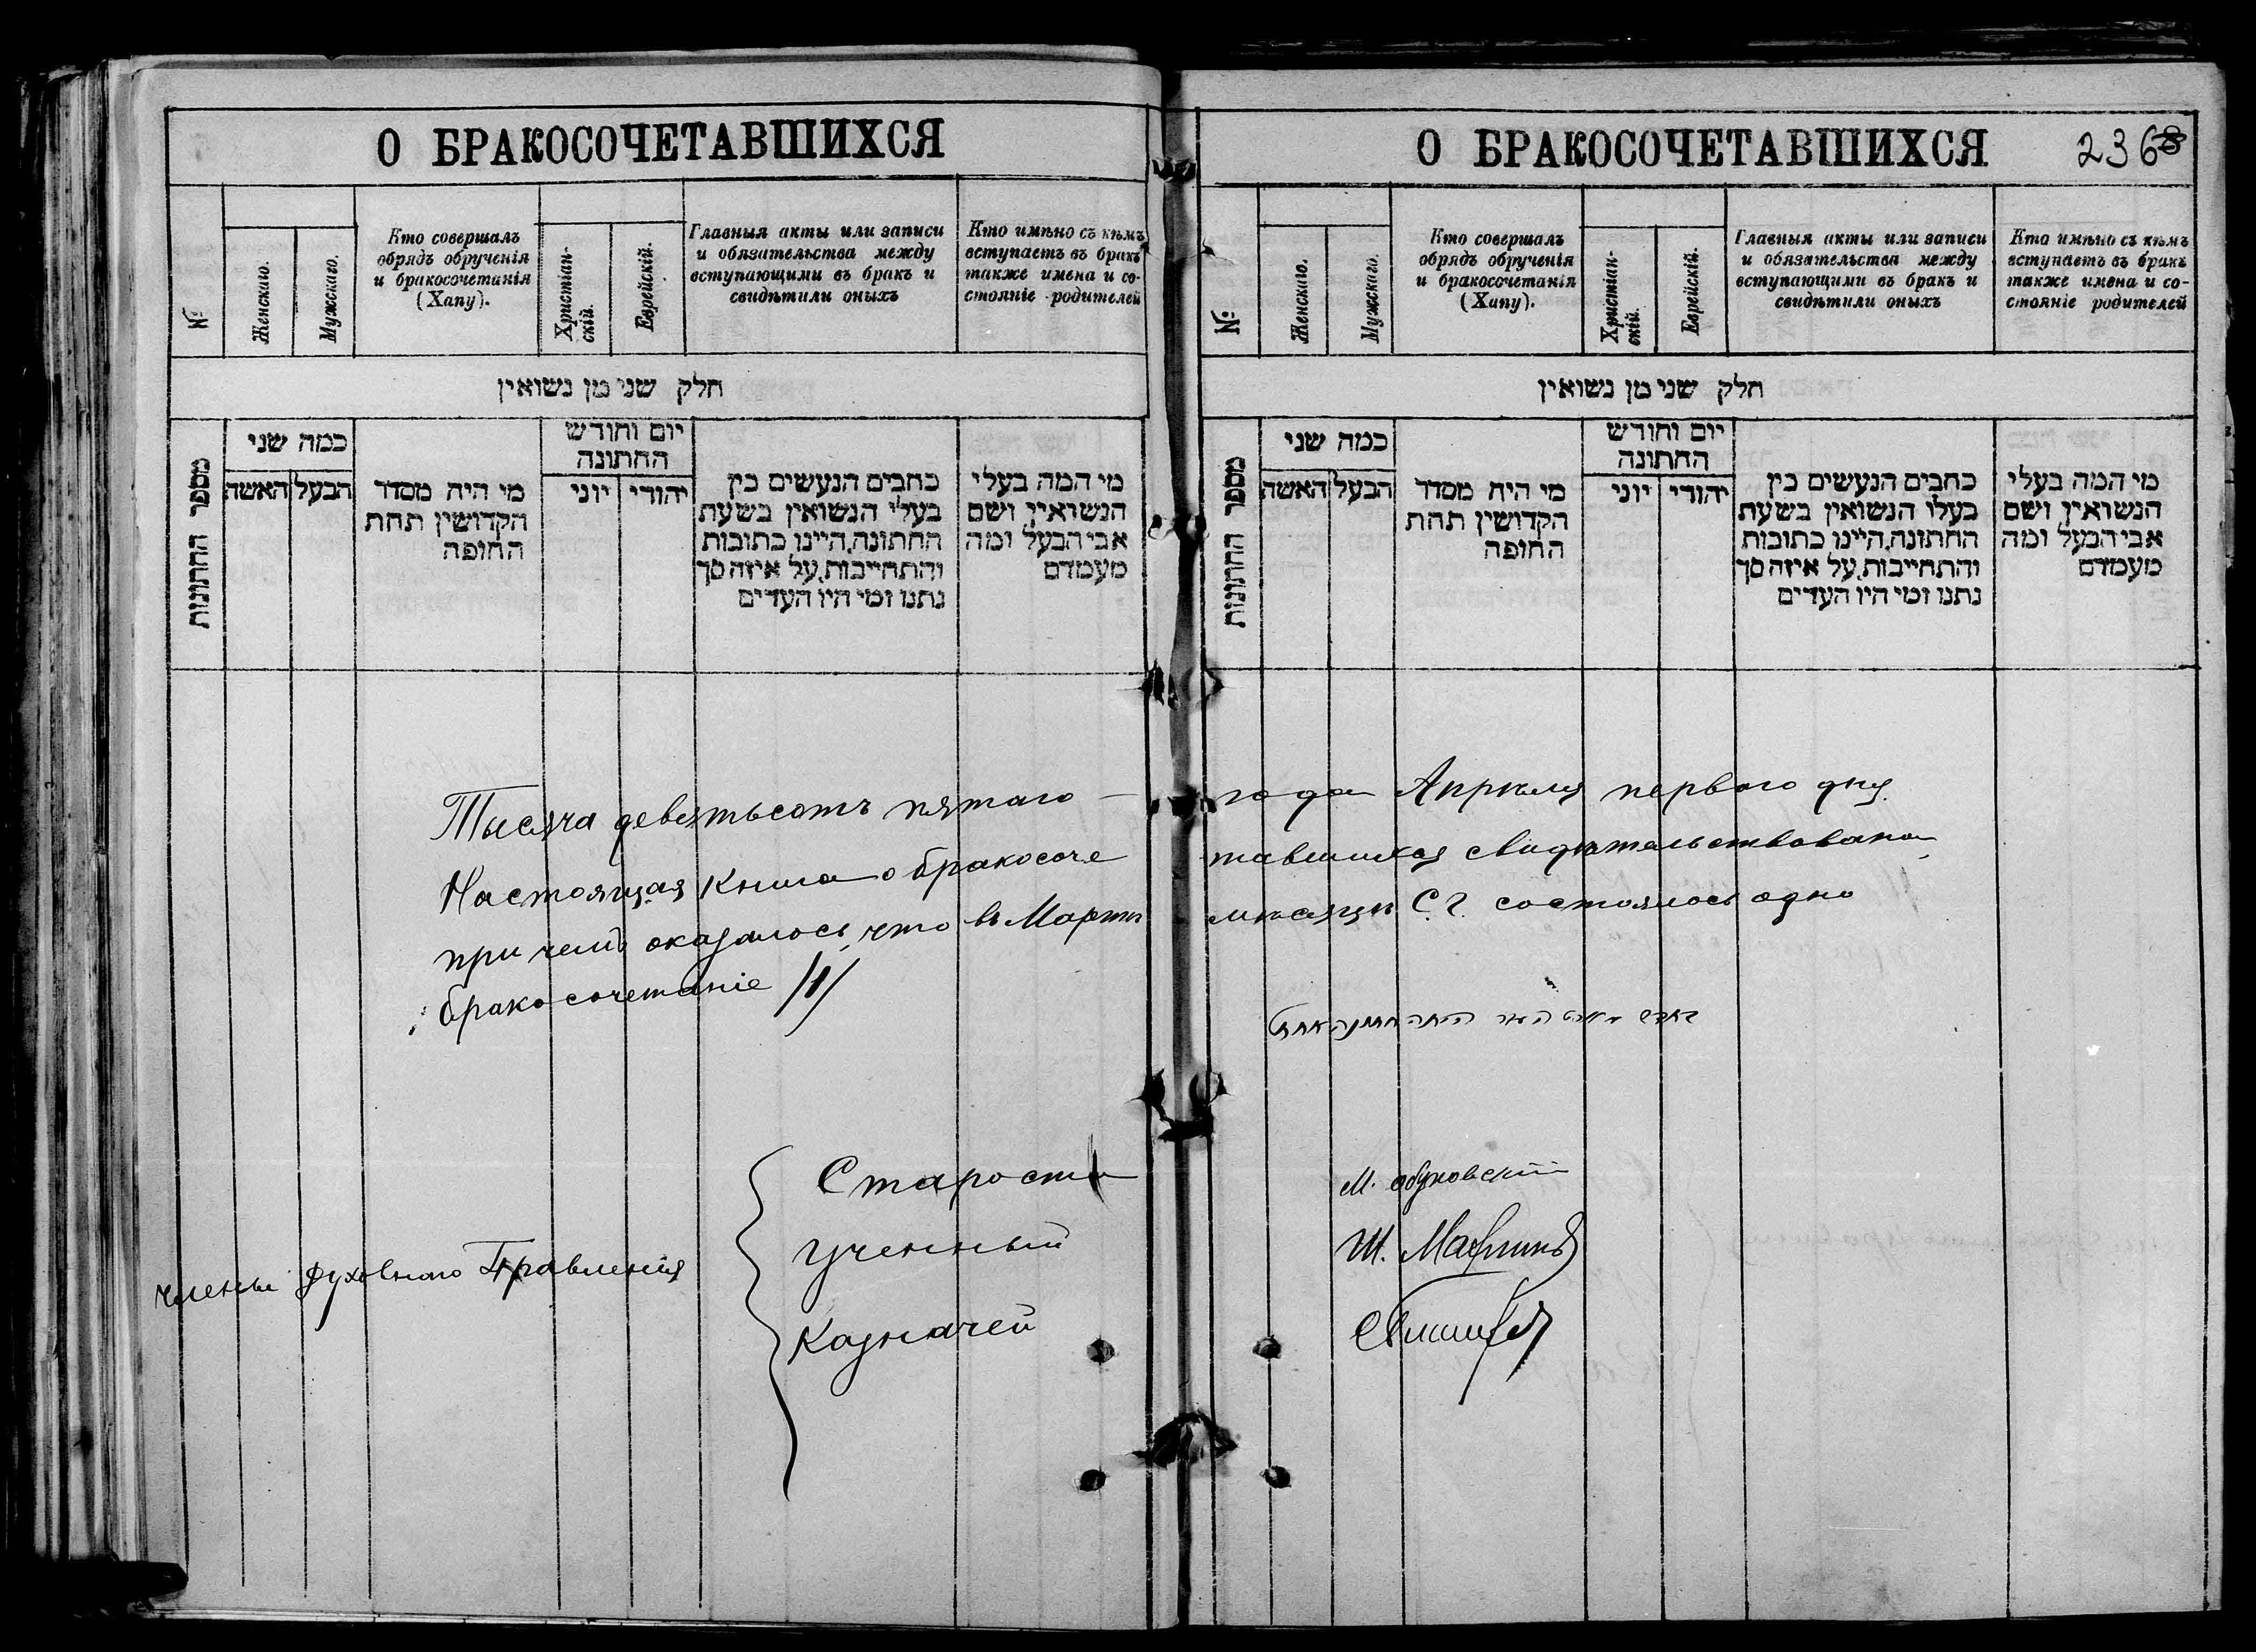 О БРАКОСОЧЕТАВШИХСЯ
№
Женскаго.
Мужскаго.
Кто совершалъ
обрядъ обрученія
и бракосочетанія
(Хапу).
Христіан-
скій.
Еврейскій.
Главныя акты или записи
и обязательства между
вступающими въ бракъ и
свидѣтили оныхъ
Кто имѣно съ кѣмъ
вступаетъ въ бракъ
также имена и со-
стояніе родителей
חלק שני מן נשואין
מספר החתונות
כמה שני
הבעל
האשה
מי היה מסדר
הקדושין תחת
החופה
יום וחודש
החתונה
יהודי
יוני
כתבים הנעשים בין
בעלי הנשואין בשעת
החתונה, היינו כתובות
והתחייבות, על איזה סך
נתנו ומי היו העדים
מי המה בעלי
הנשואין ושם
אבי הבעל ומה
מעמדם
О БРАКОСОЧЕТАВШИХСЯ
236
№
Женскаго.
Мужскаго.
Кто совершалъ
обрядъ обрученія
и бракосочетанія
(Хапу).
Христіан-
скій.
Еврейскій.
Главныя акты или записи
и обязательства между
вступающими въ бракъ и
свидѣтили оныхъ
Кто имѣно съ кѣмъ
вступаетъ въ бракъ
также имена и со-
стояніе родителей
חלק שני מן נשואין
מספר החתונות
כמה שני
הבעל
האשה
מי היה מסדר
הקדושין תחת
החופה
יום וחודש
החתונה
יהודי
יוני
כתבים הנעשים בין
בעלו הנשואין בשעת
החתונה, היינו כתובות
והתחייבות, על איזה סך
נתנו ומי היו העדים
מי המה בעלי
הנשואין ושם
אבי הבעל ומה
מעמדם
Тысяча девятьсотъ пятаго — года Апрѣля перваго дня.
Настоящая книга о бракосоче тавшихся свидѣтельствована,
при чемъ оказалось, что въ Мартѣ мѣсяцѣ С.Г. состоялось одно
бракосочетаніе /1/
Члены Духовнаго Правленія
Староста М.
Ученный Ш.
Казначей